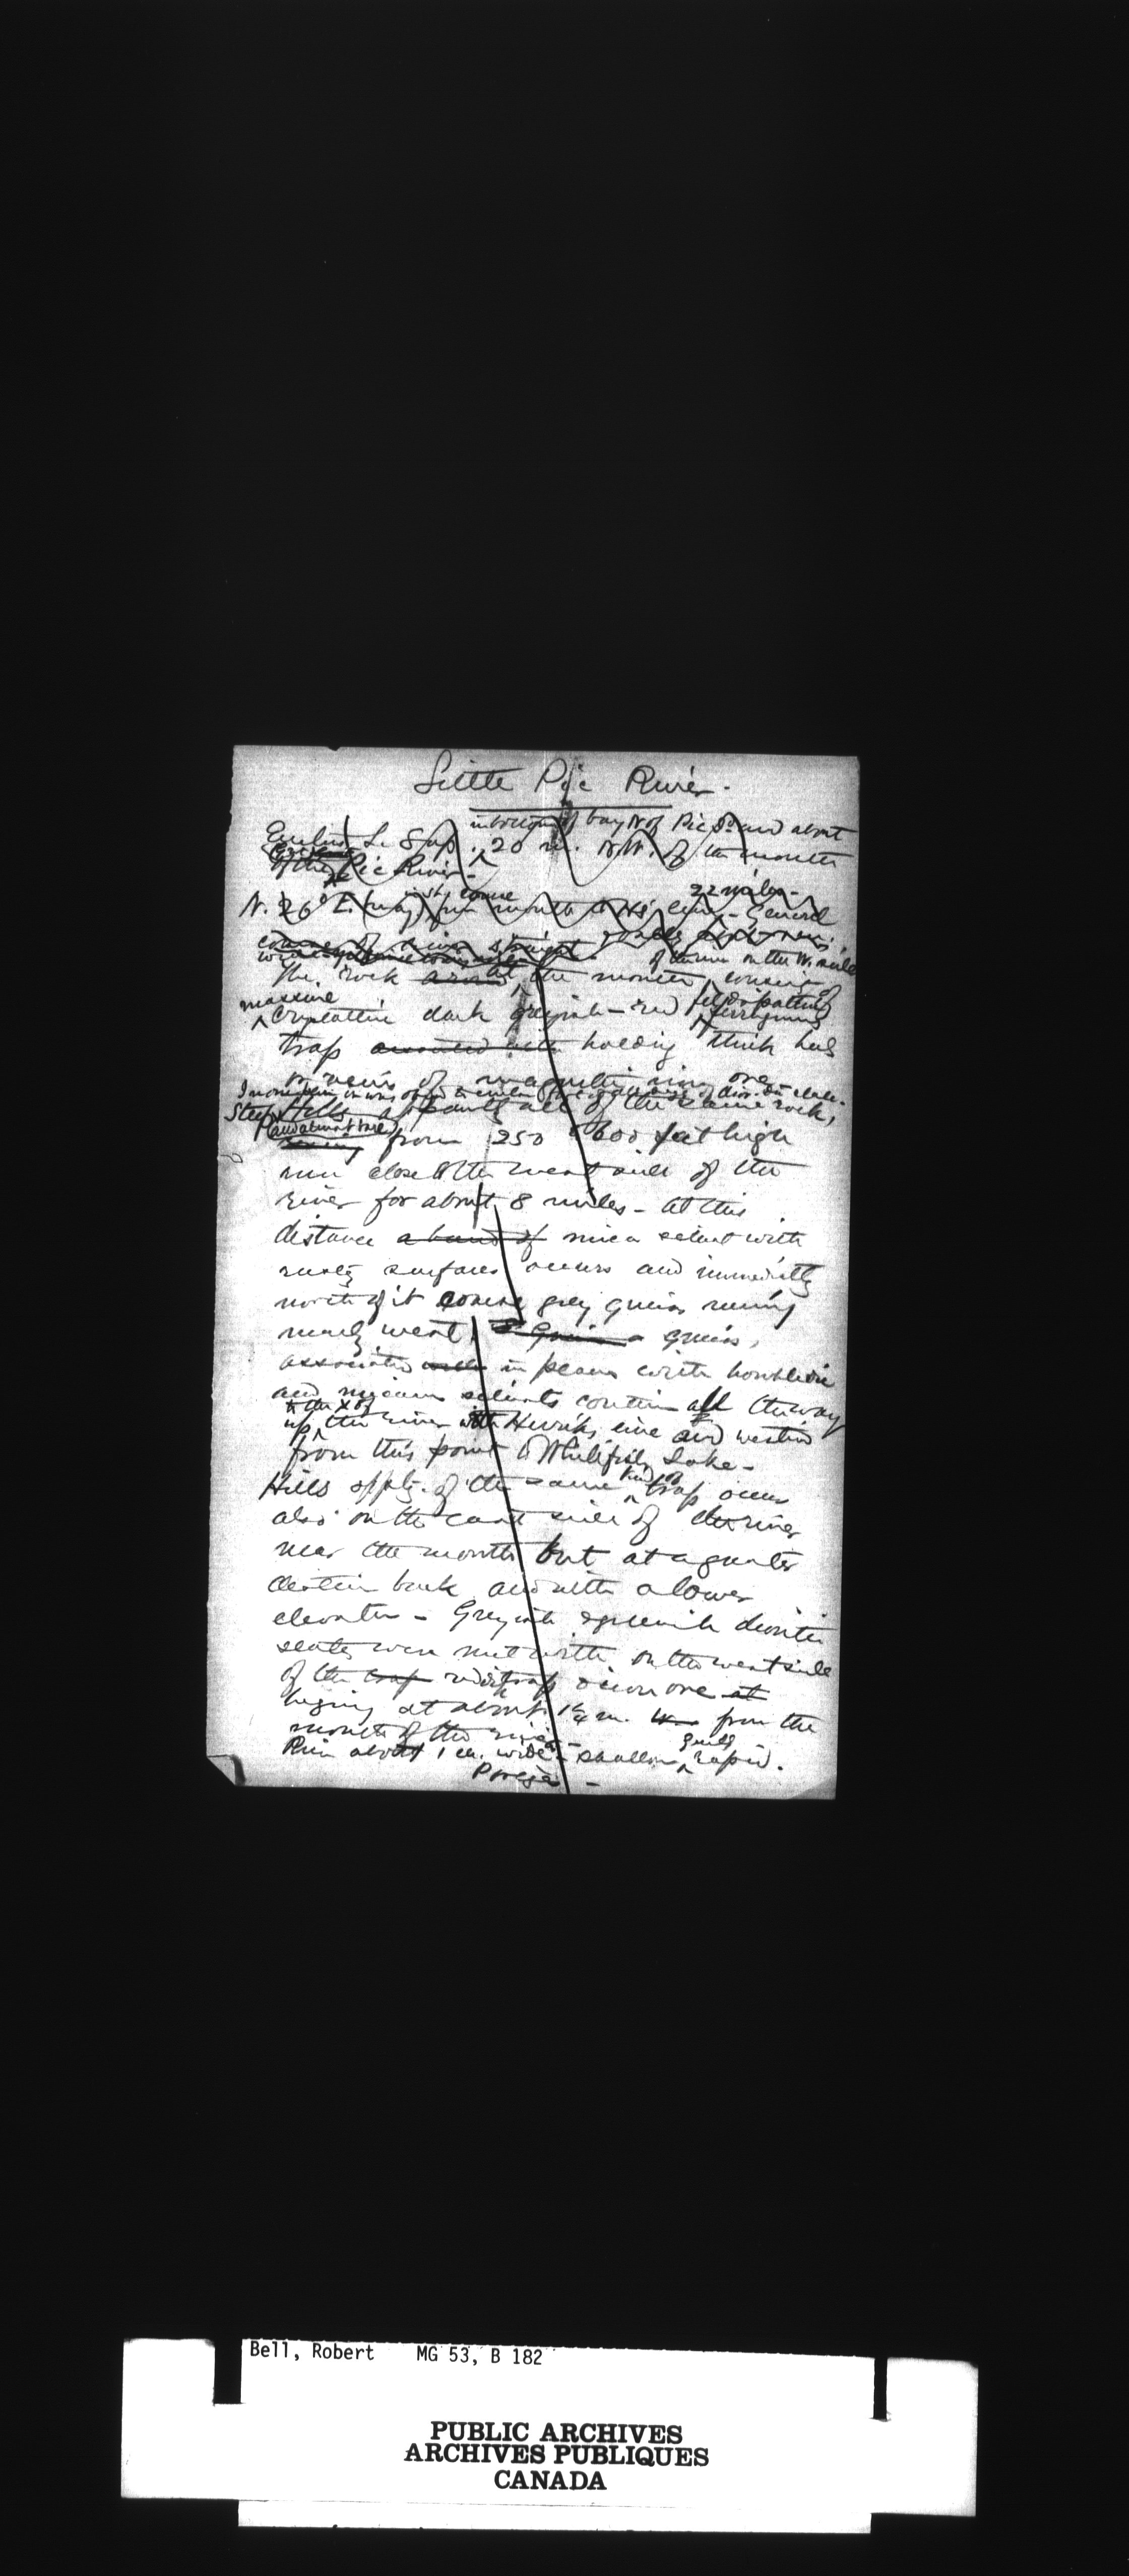 Little Pic River.
in bottom of bay N of Pic I. and about
L. Sup. 20 m. N.W. of the mouth
of the Pic River.
22 miles
N. 26° E. (mag) from mouth to line. General
course of river straight
of the river on the W. side
The rock at the mouth, consists of
massive feldspathic
crystalline dark greyish-red ferruginous
trap holding thick beds
or veins of magnetic iron ore
Steep Hills apparently all of the same rock,
(and almost bare)
from 250 to 600 feet high
run close to the west side of the
river for about 8 miles - at this
distance a band of mica schist with
rusty surfaces occurs and immediately
north of it coarse grey gneiss running
nearly west. gneiss,
associated in places with hornblende
and micaceous schists continue all the way
to the X of
up the river with Herrick's line and westward
from this point to Whitefish Lake -
Hills apptly. of the same kind of trap occur
also on the east side of the river
near the mouth but at a greater
distance back and with a lower
elevation - Greyish & greenish diorite
slates were met with on the west side
of the trap reddish trap at
begining at about 1¼ m. from the
mouth of the river -
River about 1 ch. wide - shallow, rapid.